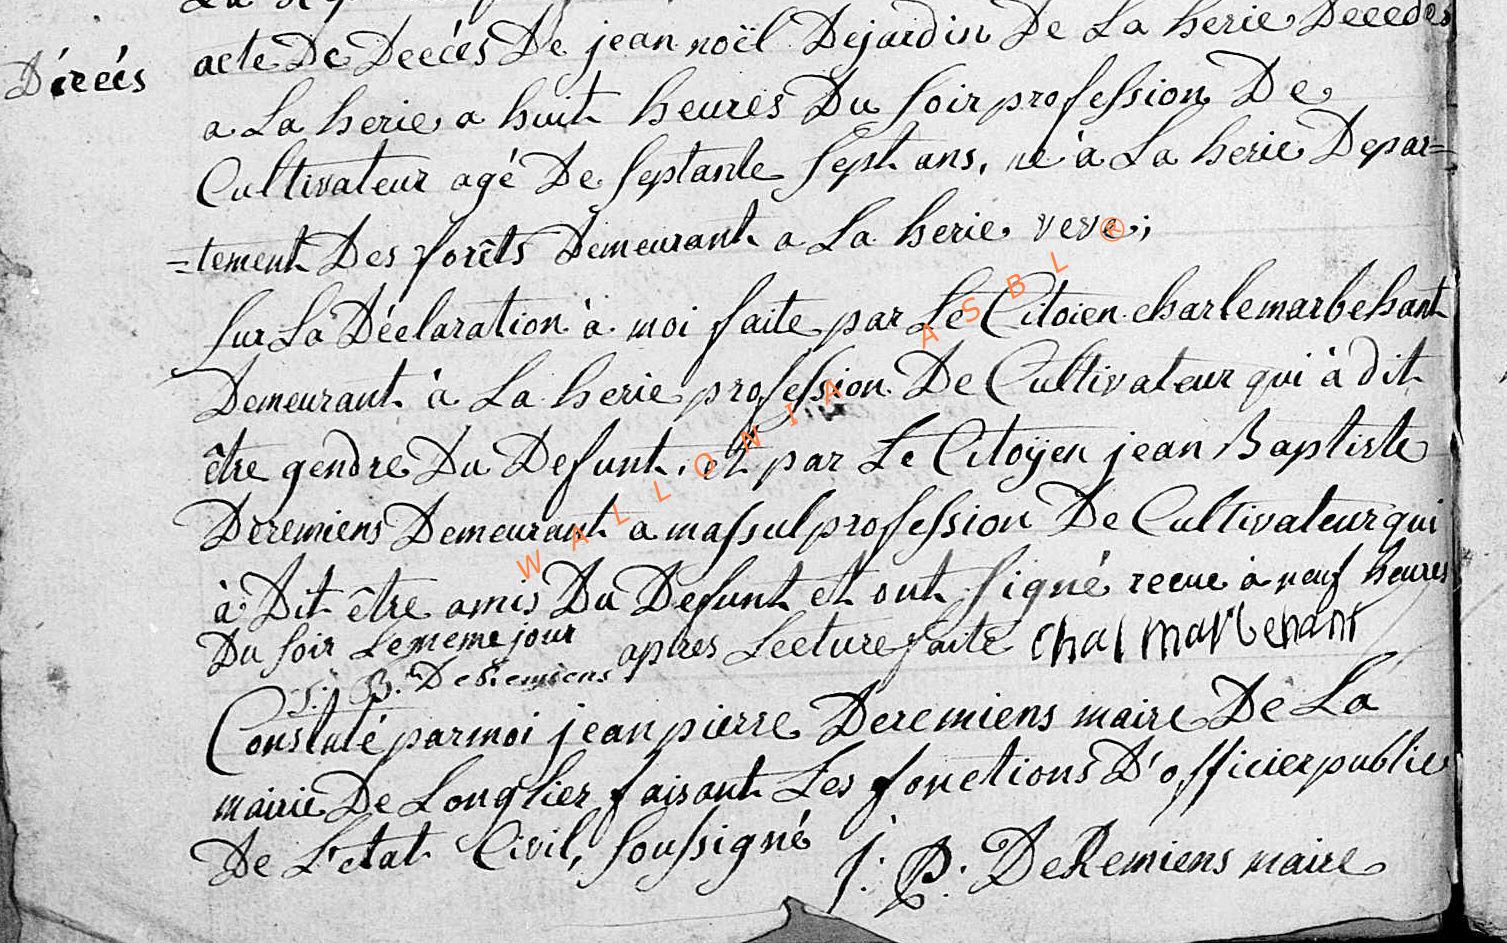 Décées
acte De Decées De jean noël Dejardin De La herie Decedé
a La herie a huit heures Du soir profession De
Cultivateur agé De septante sept ans, né à La herie Depar=
=tement Des forêts Demeurant a La herie veve;
sur La Déclaration à moi faite par Le Citoien charle marbehant
Demeurant à La herie profession De Cultivateur qui à dit
être gendre Du Defunt, et par Le Citoÿen jean Baptiste
Deremiens Demeurant a massul profession De Cultivateur qui
à Dit être amis Du Defunt et ont signé recue à neuf heures
Du soir Le meme jour apres Lecture faite chal marbehant
J. B. DeRemiens
Constaté par moi jean pierre Deremiens maire De La
mairie De Longlier faisant Les fonctions D'officier public
De L'etat Civil, soussigné J. P. DeRemiens maire
WALLONIA ASBL ®